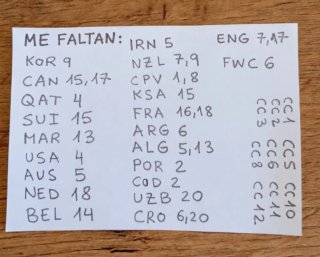 ME FALTAN:
KOR 9
CAN 15,17
QAT 4
SUI 15
MAR 13
USA 4
AUS 5
NED 18
BEL 14
IRN 5
NZL 7,9
CPV 1,8
KSA 15
FRA 16,18
ARG 6
ALG 5,13
POR 2
COD 2
UZB 20
CRO 6,20
ENG 7,17
FWC 6
CC1
CC2
CC3
CC5
CC6
CC8
CC10
CC11
CC12